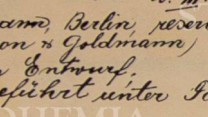 mann, Berlin, reserv
on & Goldmann)
Entwurf.
geführt unter
BOHEMIA